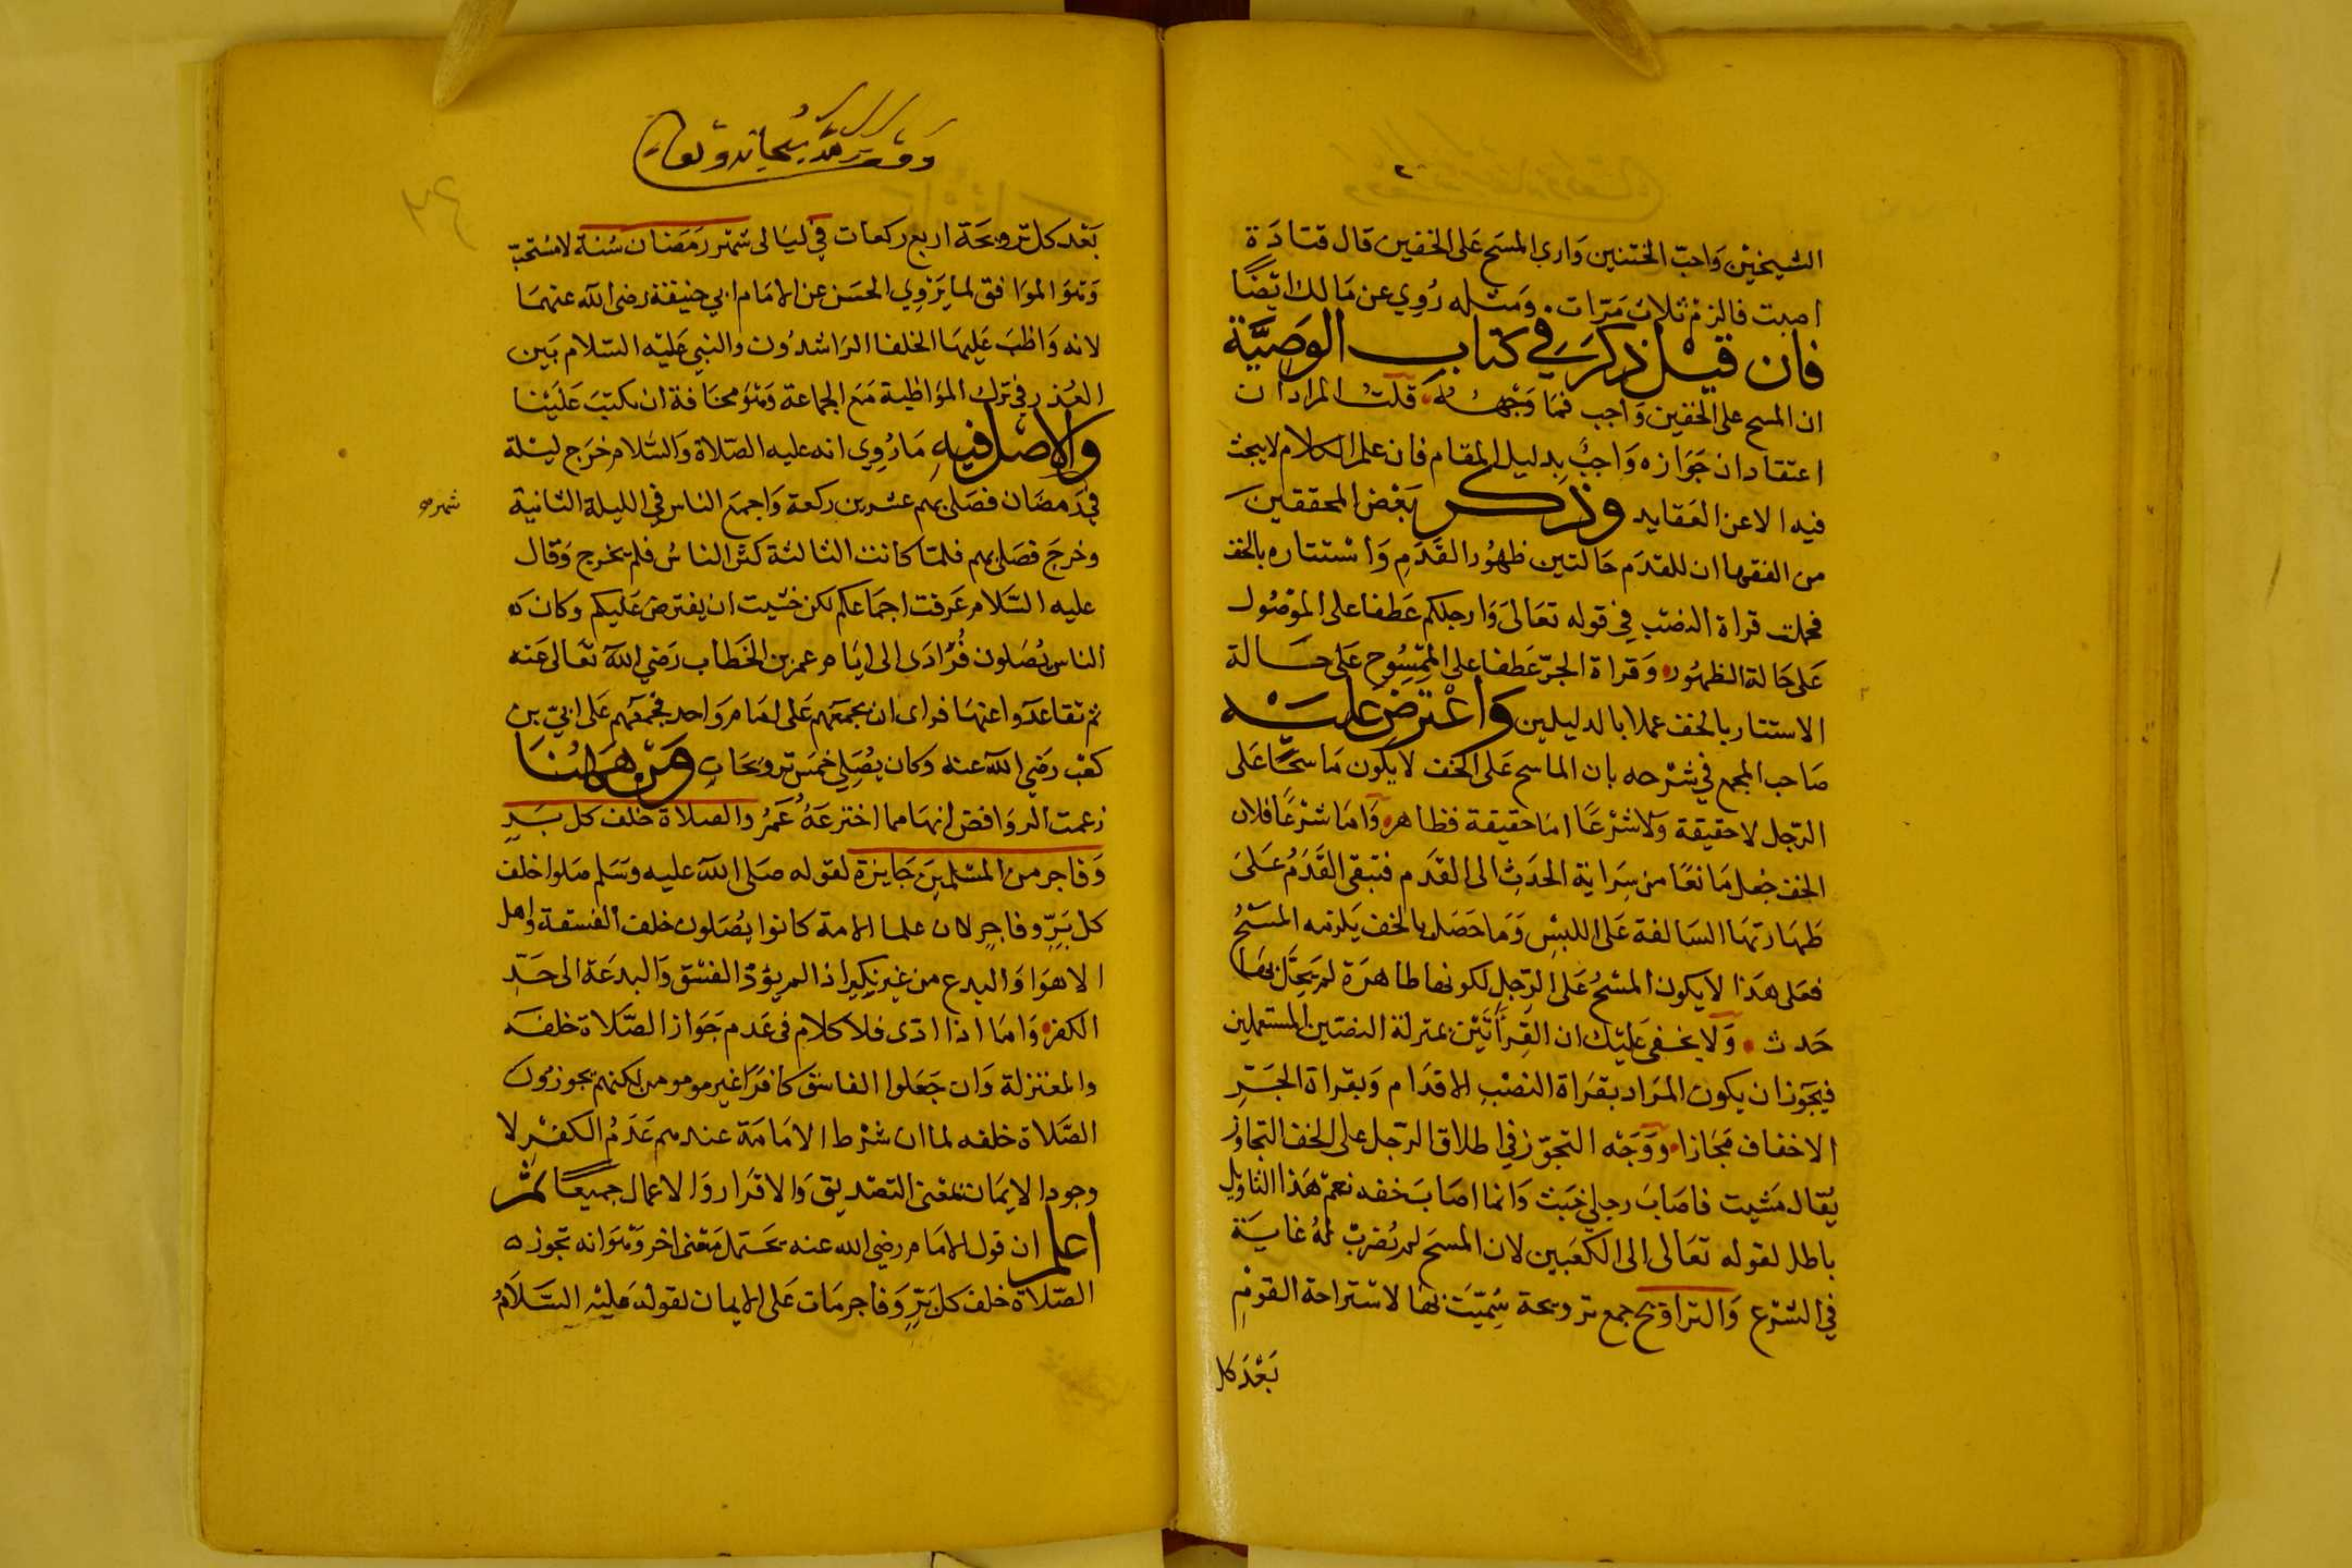 الشيخين واحب الختنين واري المسح على الخفين قال قتادة
اصبت فالزم ثلاث مرات ومثله روي عن مالك ايضا
فان قيل ذكر في كتاب الوصية
ان المسح على الخفين واجب فما وجهه قلت المراد ان
اعتقاد ان جوازه واجب بدليل المقام فان علم الكلام لا يبحث
فيه الا عن العقايد وذكر بعض المحققين
من الفقها ان للقدم حالتين ظهور القدم واستتاره بالخف
فحملت قراة النصب في قوله تعالى وارجلكم عطفا على المغسول
على حالة الظهور وقراة الجر عطفا على الممسوح على حالة
الاستتار بالخف عملا بالدليلين واعترض عليه
صاحب المجمع في شرحه بان الماسح على الخف لا يكون ماسحا على
الرجل لا حقيقة ولا شرعا اما حقيقة فظاهر واما شرعا فلان
الخف جعل مانعا من سراية الحدث الى القدم فتبقى القدم على
طهارتها السالفة على اللبس وما حصل بالخف يلزمه المسح
فعلى هذا لا يكون المسح على الرجل لكونها طاهرة لم يحل بها
حدث ولا يخفى عليك ان القراتين بمنزلة النصين المستعملين
فيجوز ان يكون المراد بقراة النصب الاقدام وبقراة الجر
الاخفاف مجازا ووجه التجوز في اطلاق الرجل على الخف التجاوز
يقال مشيت فاصاب رجلي خبث وانما اصاب خفه نعم هذا التاويل
باطل لقوله تعالى الى الكعبين لان المسح لم تضرب له غاية
في الشرع والتراويح جمع ترويحة سميت بها لاستراحة القوم
بعد كل
وقف لله سبحانه وتعالى
بعد كل ترويحة اربع ركعات في ليالى شهر رمضان سنة لا مستحب
وهو الموافق لما يروي الحسن عن الامام ابي حنيفة رضى الله عنهما
لانه واظب عليها الخلفا الراشدون والنبي عليه السلام بين
العذر في ترك المواظبة مع الجماعة وهو مخافة ان تكتب علينا
والاصل فيه ما روي انه عليه الصلاة والسلام خرج ليلة
في رمضان فصلى بهم عشرين ركعة واجمع الناس في الليلة الثانية
شهر
وخرج فصلى بهم فلما كانت الثالثة كثر الناس فلم يخرج وقال
عليه السلام عرفت اجماعكم لكن خشيت ان يفترض عليكم وكان
الناس يصلون فرادى الى ايام عمر بن الخطاب رضي الله تعالى عنه
ثم تقاعدوا عنها فراى ان يجمعهم على امام واحد فجمعهم على ابي بن
كعب رضي الله عنه وكان يصلي خمس ترويحات ومن ههنا
زعمت الروافض انها مما اخترعه عمر والصلاة خلف كل بر
وفاجر من المسلمين جايزة لقوله صلى الله عليه وسلم صلوا خلف
كل بر وفاجر لان علما الامة كانوا يصلون خلف الفسقة واهل
الاهوا والبدع من غير نكير اذا لم يؤد الفسق والبدعة الى حد
الكفر واما اذا ادى فلا كلام في عدم جواز الصلاة خلفه
والمعتزلة وان جعلوا الفاسق كافرا غير مومن لكنهم يجوزون
الصلاة خلفه لما ان شرط الامامة عندهم عدم الكفر لا
وجود الايمان بمعنى التصديق والاقرار والاعمال جميعا ثم
اعلم ان قول الامام رضي الله عنه يحتمل معنى اخر وهو انه تجوز
الصلاة خلف كل بر وفاجر مات على الايمان لقوله عليه السلام